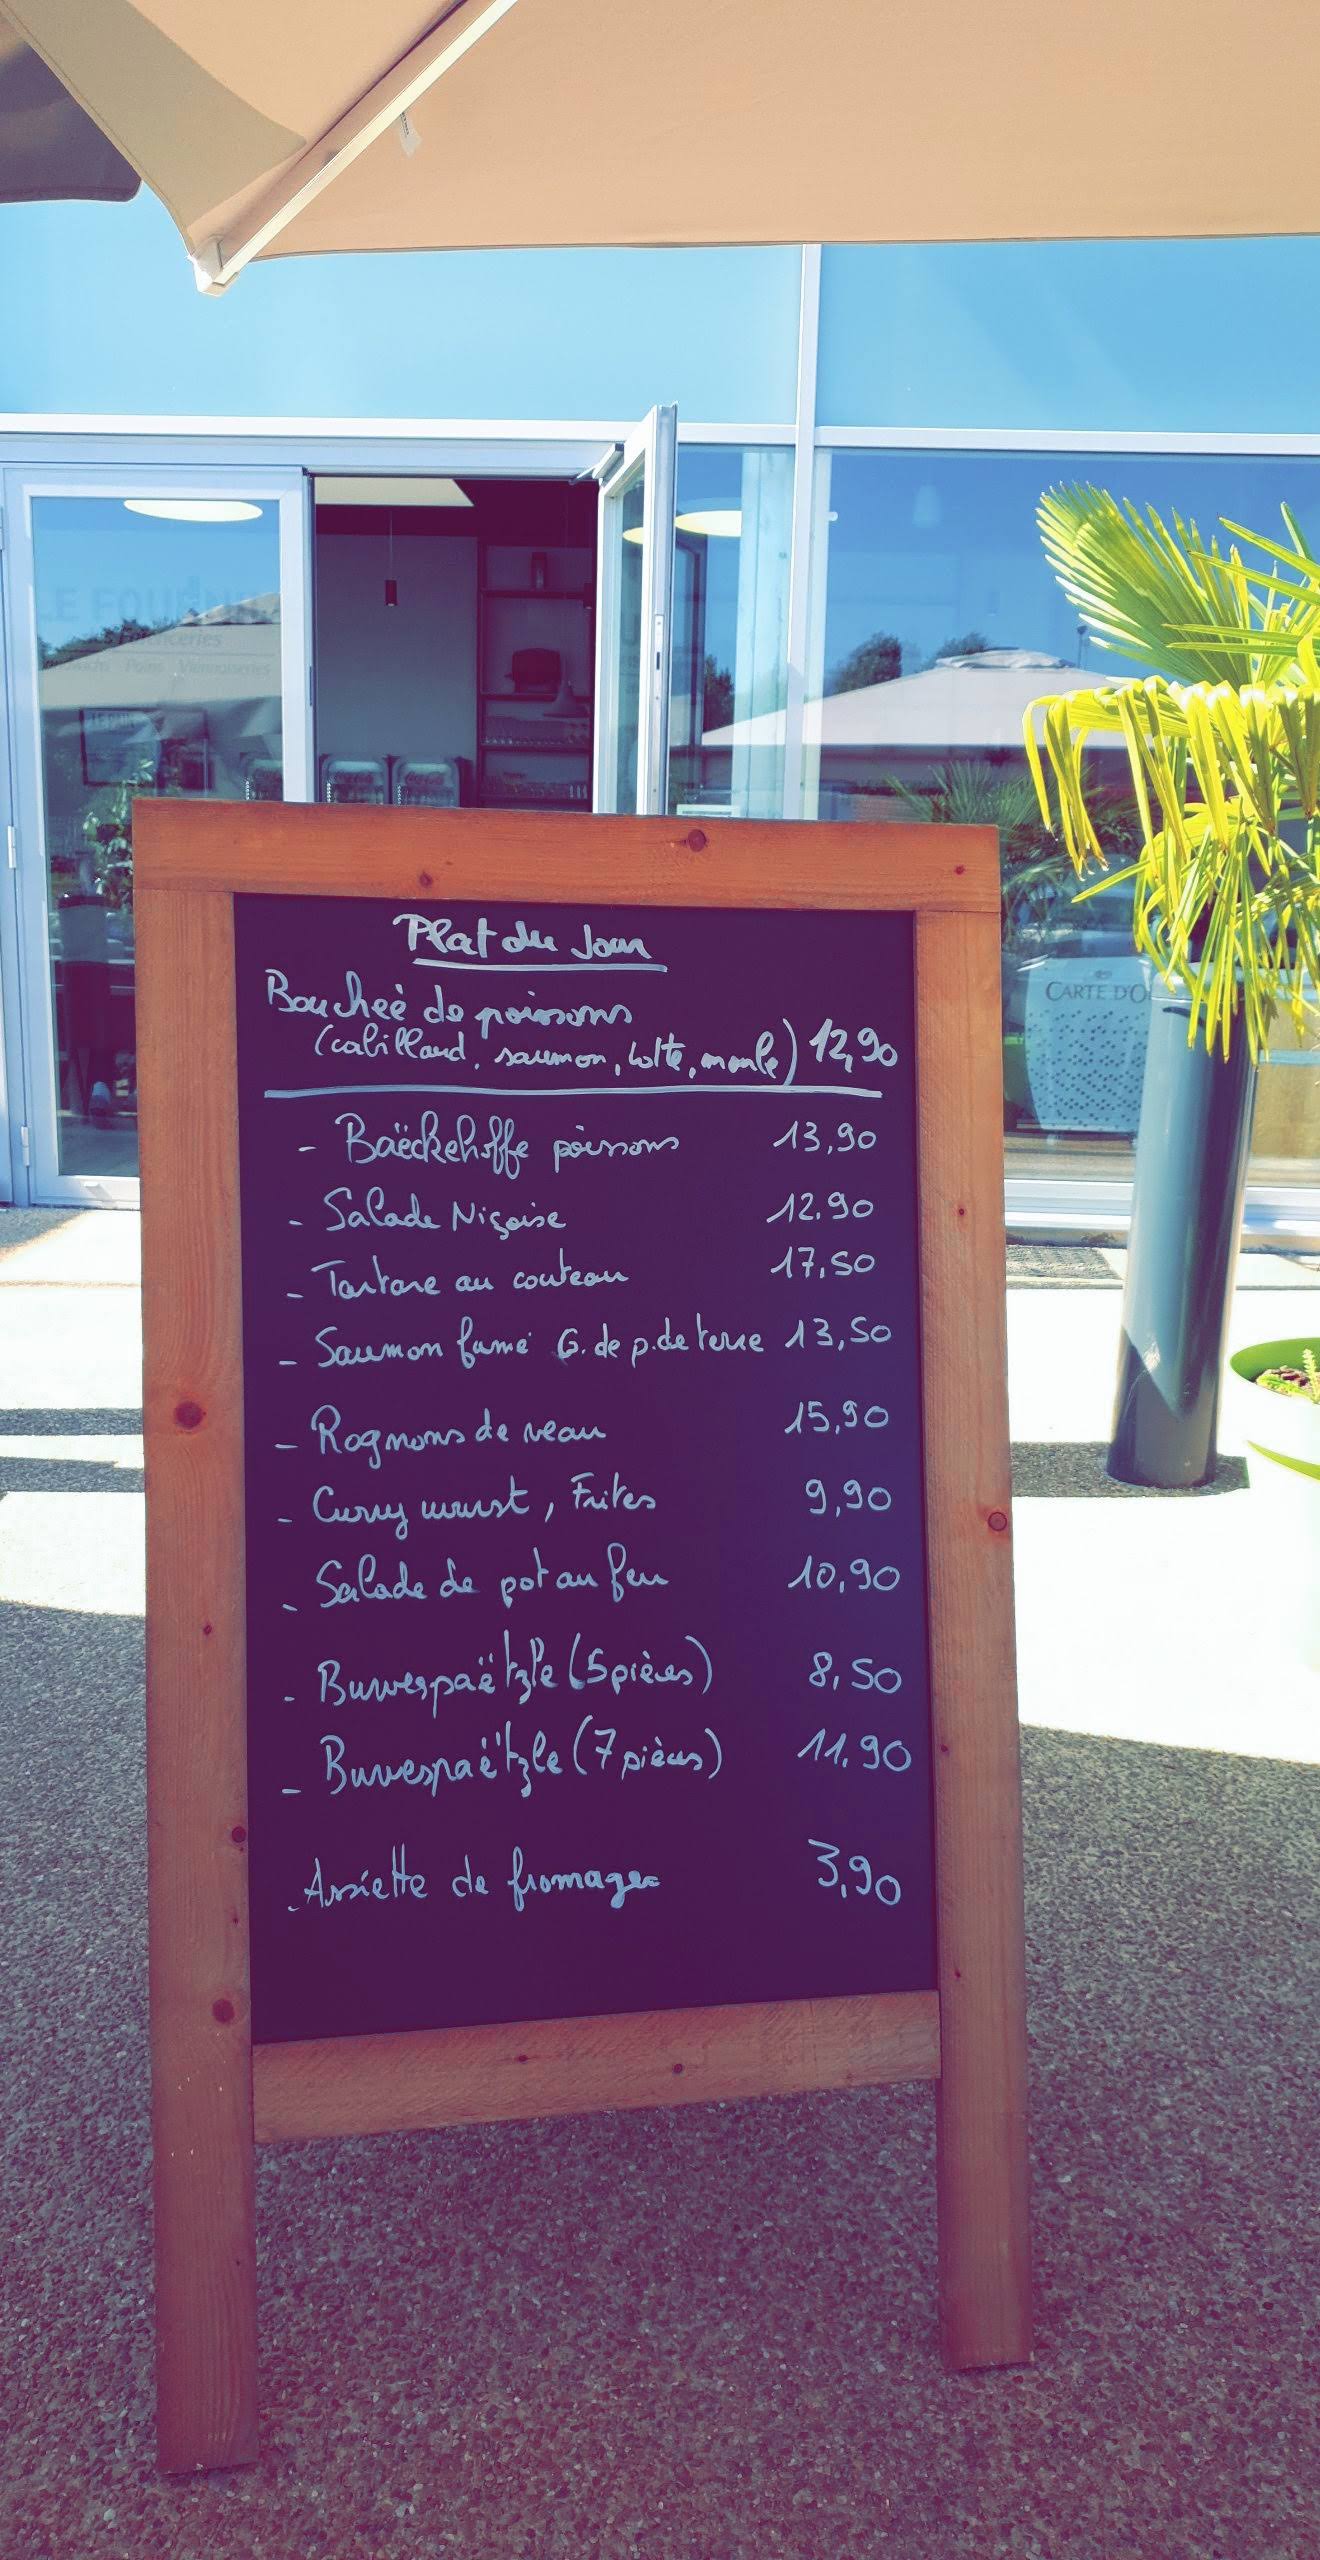 LE FOURN
Plat du Jour
Boucheé de poissons
(cabillaud, saumon, lotte, moule) 12,90
- Baëckehoffe poissons 13,90
- Salade Niçoise 12.90
- Tartare au couteau 17,50
- Saumon fumé G. de p. de terre 13,50
- Rognons de veau 15,90
- Curry wurst, Frites 9,90
- Salade de pot au feu 10,90
- Buwespaëtzle (5 pièces) 8,50
- Buwespaëtzle (7 pièces) 11.90
- Assiette de fromage 3,90
CARTE D'O